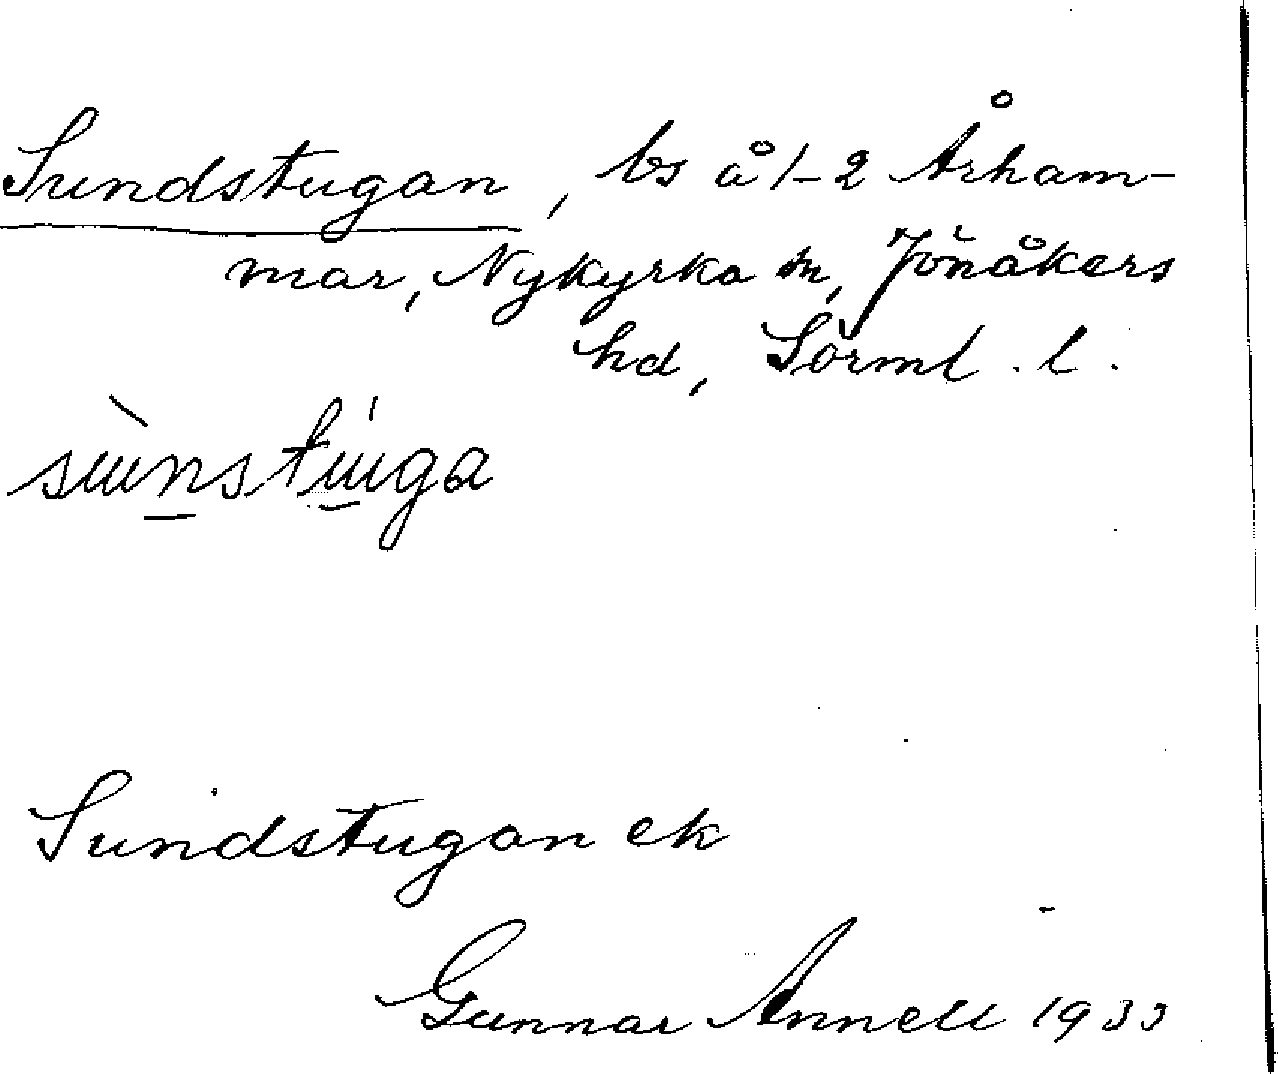 Sundstugan, bs å 1-2 Årham-
mar, Nykyrka sn, Jönåkers
hd, Sörml. l.
Sundstugan ek
Gunnar Annell 1933